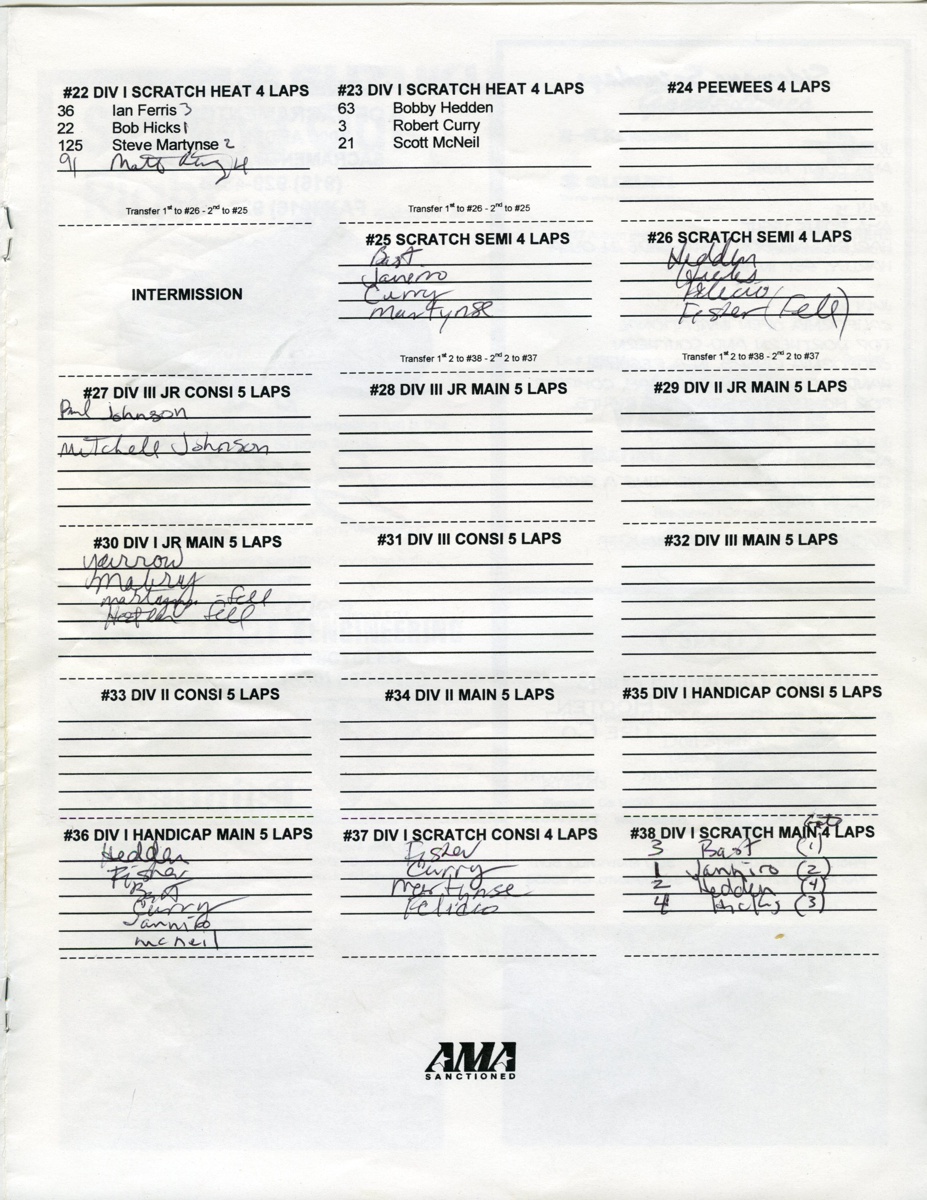 #22 DIV I SCRATCH HEAT 4 LAPS
36 Ian Ferris 3
22 Bob Hicks 1
125 Steve Martynse 2
91 Matt 4
Transfer 1st to #26 - 2nd to #25
#23 DIV I SCRATCH HEAT 4 LAPS
63 Bobby Hedden
3 Robert Curry
21 Scott McNeil
Transfer 1st to #26 - 2nd to #25
#24 PEEWEES 4 LAPS
INTERMISSION
#25 SCRATCH SEMI 4 LAPS
Bast
Janerro
Curry
Martynse
Transfer 1st 2 to #38 - 2nd 2 to #37
#26 SCRATCH SEMI 4 LAPS
Hedden
Hicks
Felicio
Fisher (Fell)
Transfer 1st 2 to #38 - 2nd 2 to #37
#27 DIV III JR CONSI 5 LAPS
Paul Johnson
Mitchell Johnson
#28 DIV III JR MAIN 5 LAPS
#29 DIV II JR MAIN 5 LAPS
#30 DIV I JR MAIN 5 LAPS
Yarrow
Mabry
- fell
fell
#31 DIV III CONSI 5 LAPS
#32 DIV III MAIN 5 LAPS
#33 DIV II CONSI 5 LAPS
#34 DIV II MAIN 5 LAPS
#35 DIV I HANDICAP CONSI 5 LAPS
#36 DIV I HANDICAP MAIN 5 LAPS
Hedden
Fisher
Bast
Curry
Janniro
McNeil
#37 DIV I SCRATCH CONSI 4 LAPS
Fisher
Curry
Martynse
Felicio
#38 DIV I SCRATCH MAIN 4 LAPS
3 Bast (1)
1 Janniro (2)
2 Hedden (4)
4 Hicks (3)
AMA
SANCTIONED